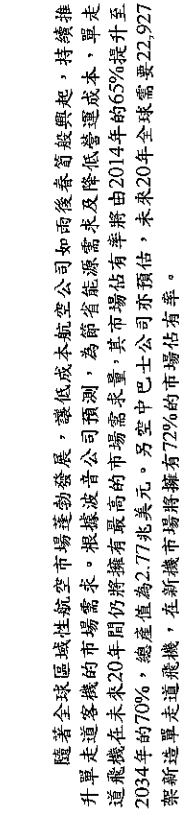 隨著全球區域性航空市場蓬勃發展，讓低成本航空公司如雨後春筍般興起，持續推
升單走道客機的市場需求。根據波音公司預測，為節省能源需求及降低營運成本，單走
道飛機在未來20年間仍將擁有最高的市場需求量，其市場佔有率將由2014年的65%提升至
2034年的70%，總產值為2.77兆美元。另空中巴士公司亦預估，未來20年全球需要22,927
架新造單走道飛機，在新機市場將擁有72%的市場佔有率。